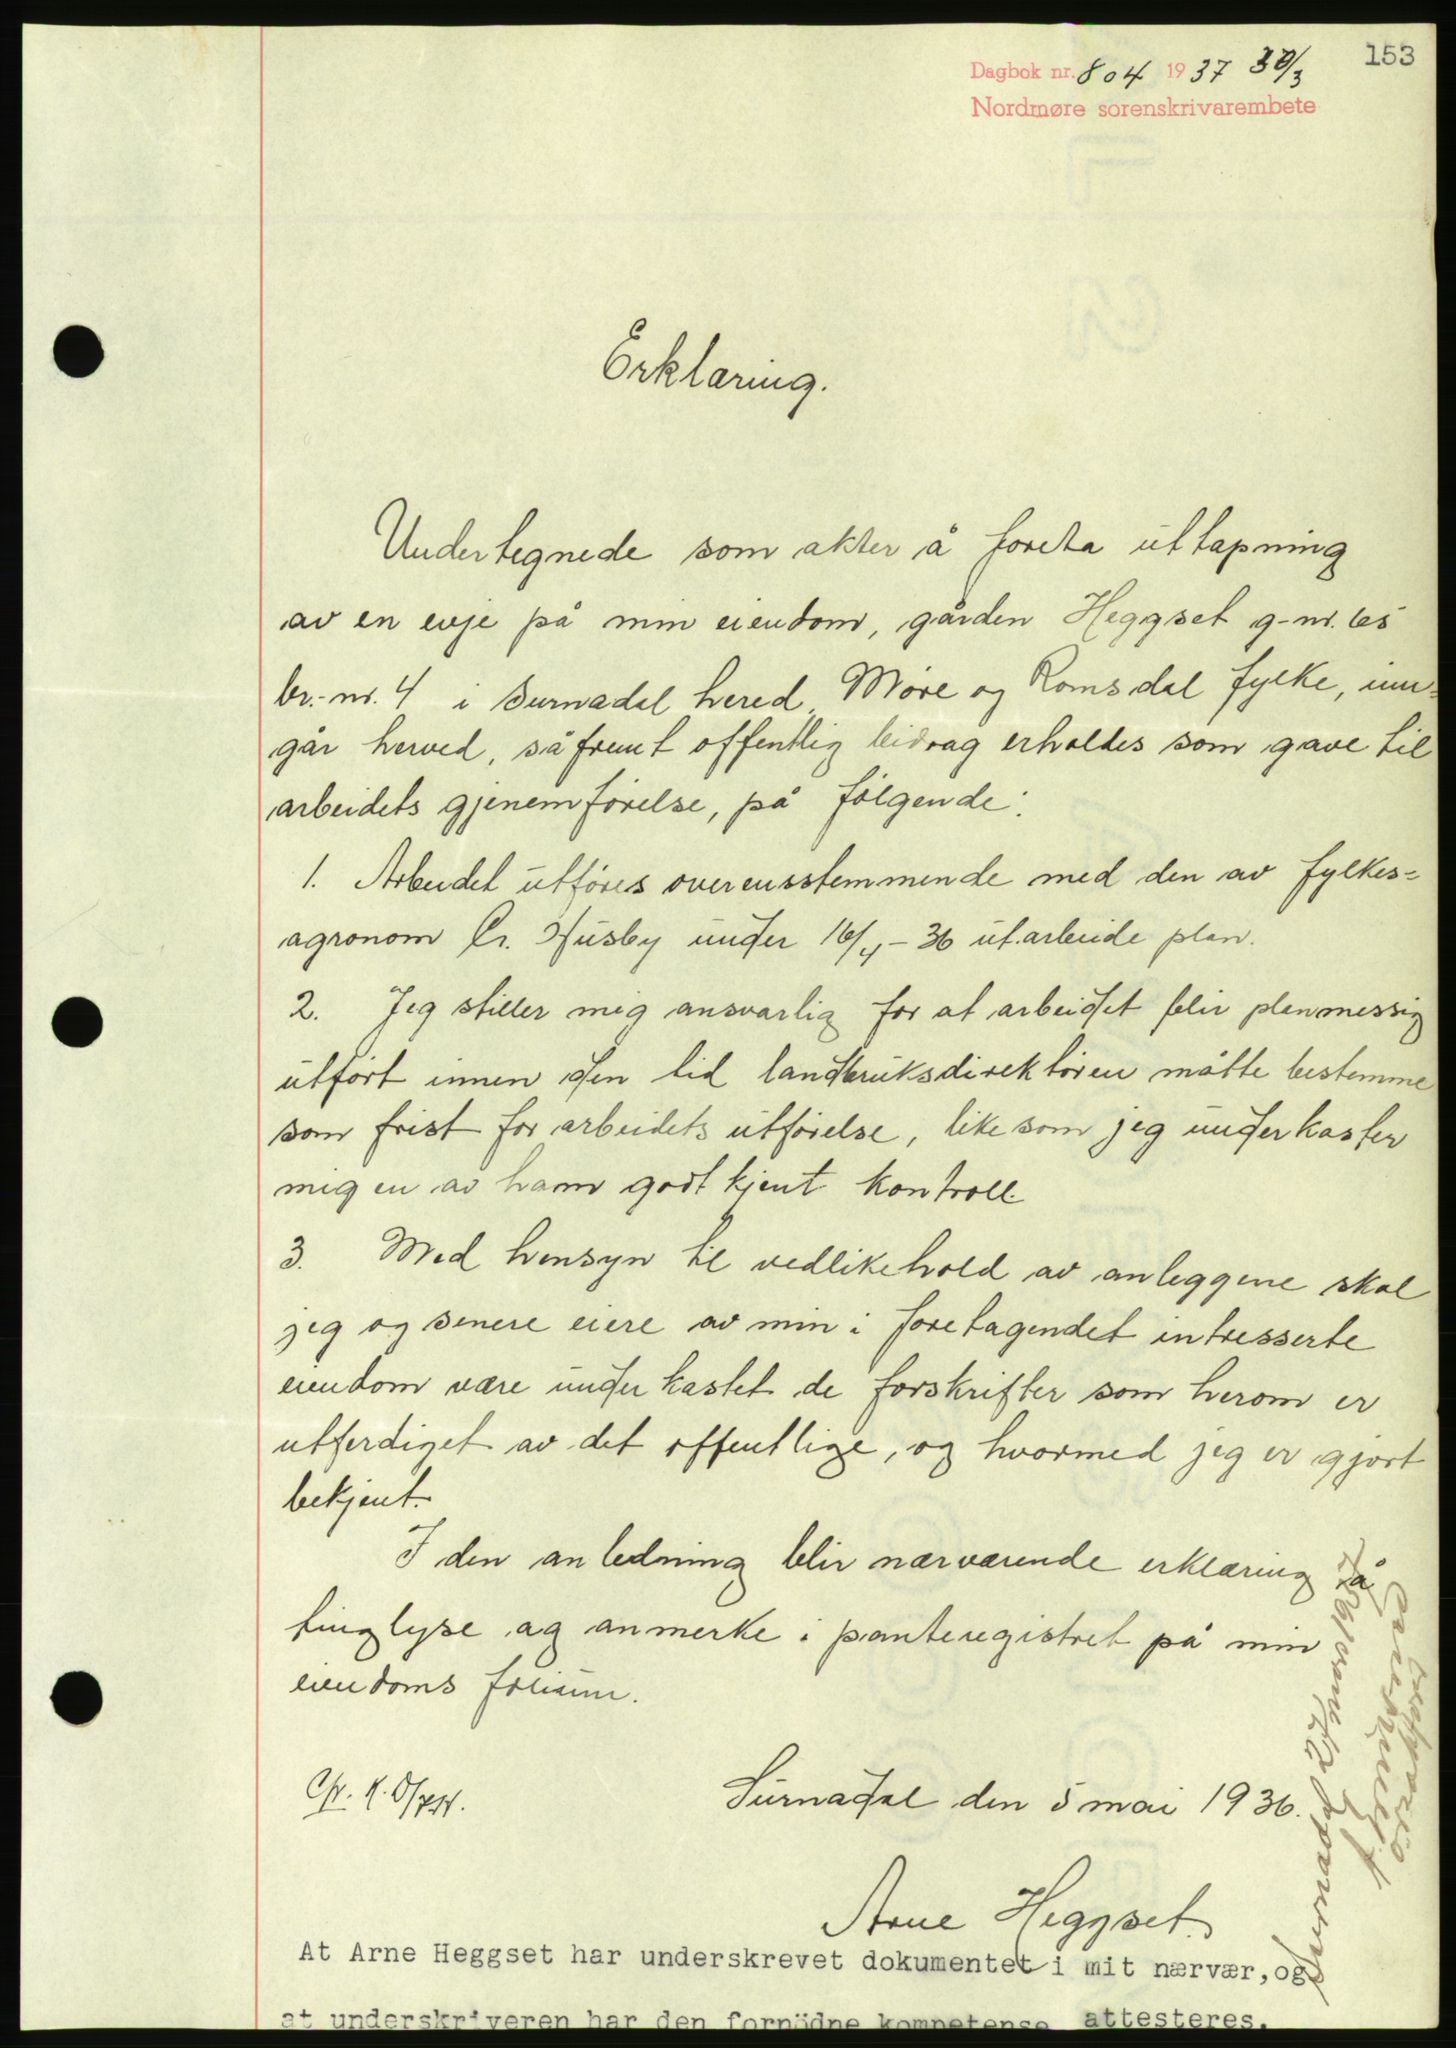 153
Dagbok nr. 804 1937 30/3
Nordmøre sorenskrivarembete
Erklæring.
Undertegnede som akter å foreta uttapning
av en evje på min eiendom, gården Heggset g-nr. 65
br.-nr. 4 i Surnadal hered, Møre og Romsdal fylke, inn-
går herved, såfremt offentlig bidrag erholdes som gave til
arbeidets gjenemførelse, på følgende:
1. Arbeidet utføres overensstemmende med den av fylkes=
agronom Cr. Husby under 16/4-36 utarbeide plan.
2. Jeg stiller mig ansvarlig for at arbeidet blir planmessig
utført innen den tid landbruksdirektøren måtte bestemme
som frist for arbeidets utførelse, like som jeg underkaster
mig en av ham godtkjent kontroll.
3. Med hensyn til vedlikehold av anleggene skal
jeg og senere eiere av min i foretagendet intresserte
eiendom være underkastet de forskrifter som herom er
utferdiget av det offentlige, og hvormed jeg er gjort
bekjent.
I den anledning blir nærværende erklæring å
tinglyse og anmerke i panteregistret på min
eiendoms folium.
Surnadal den 5 mai 1936.
Arne Heggset.
At Arne Heggset har underskrevet dokumentet i mit nærvær, og
at underskriveren har den fornödne kompetense attesteres.
Surnadal 22 mars 1937